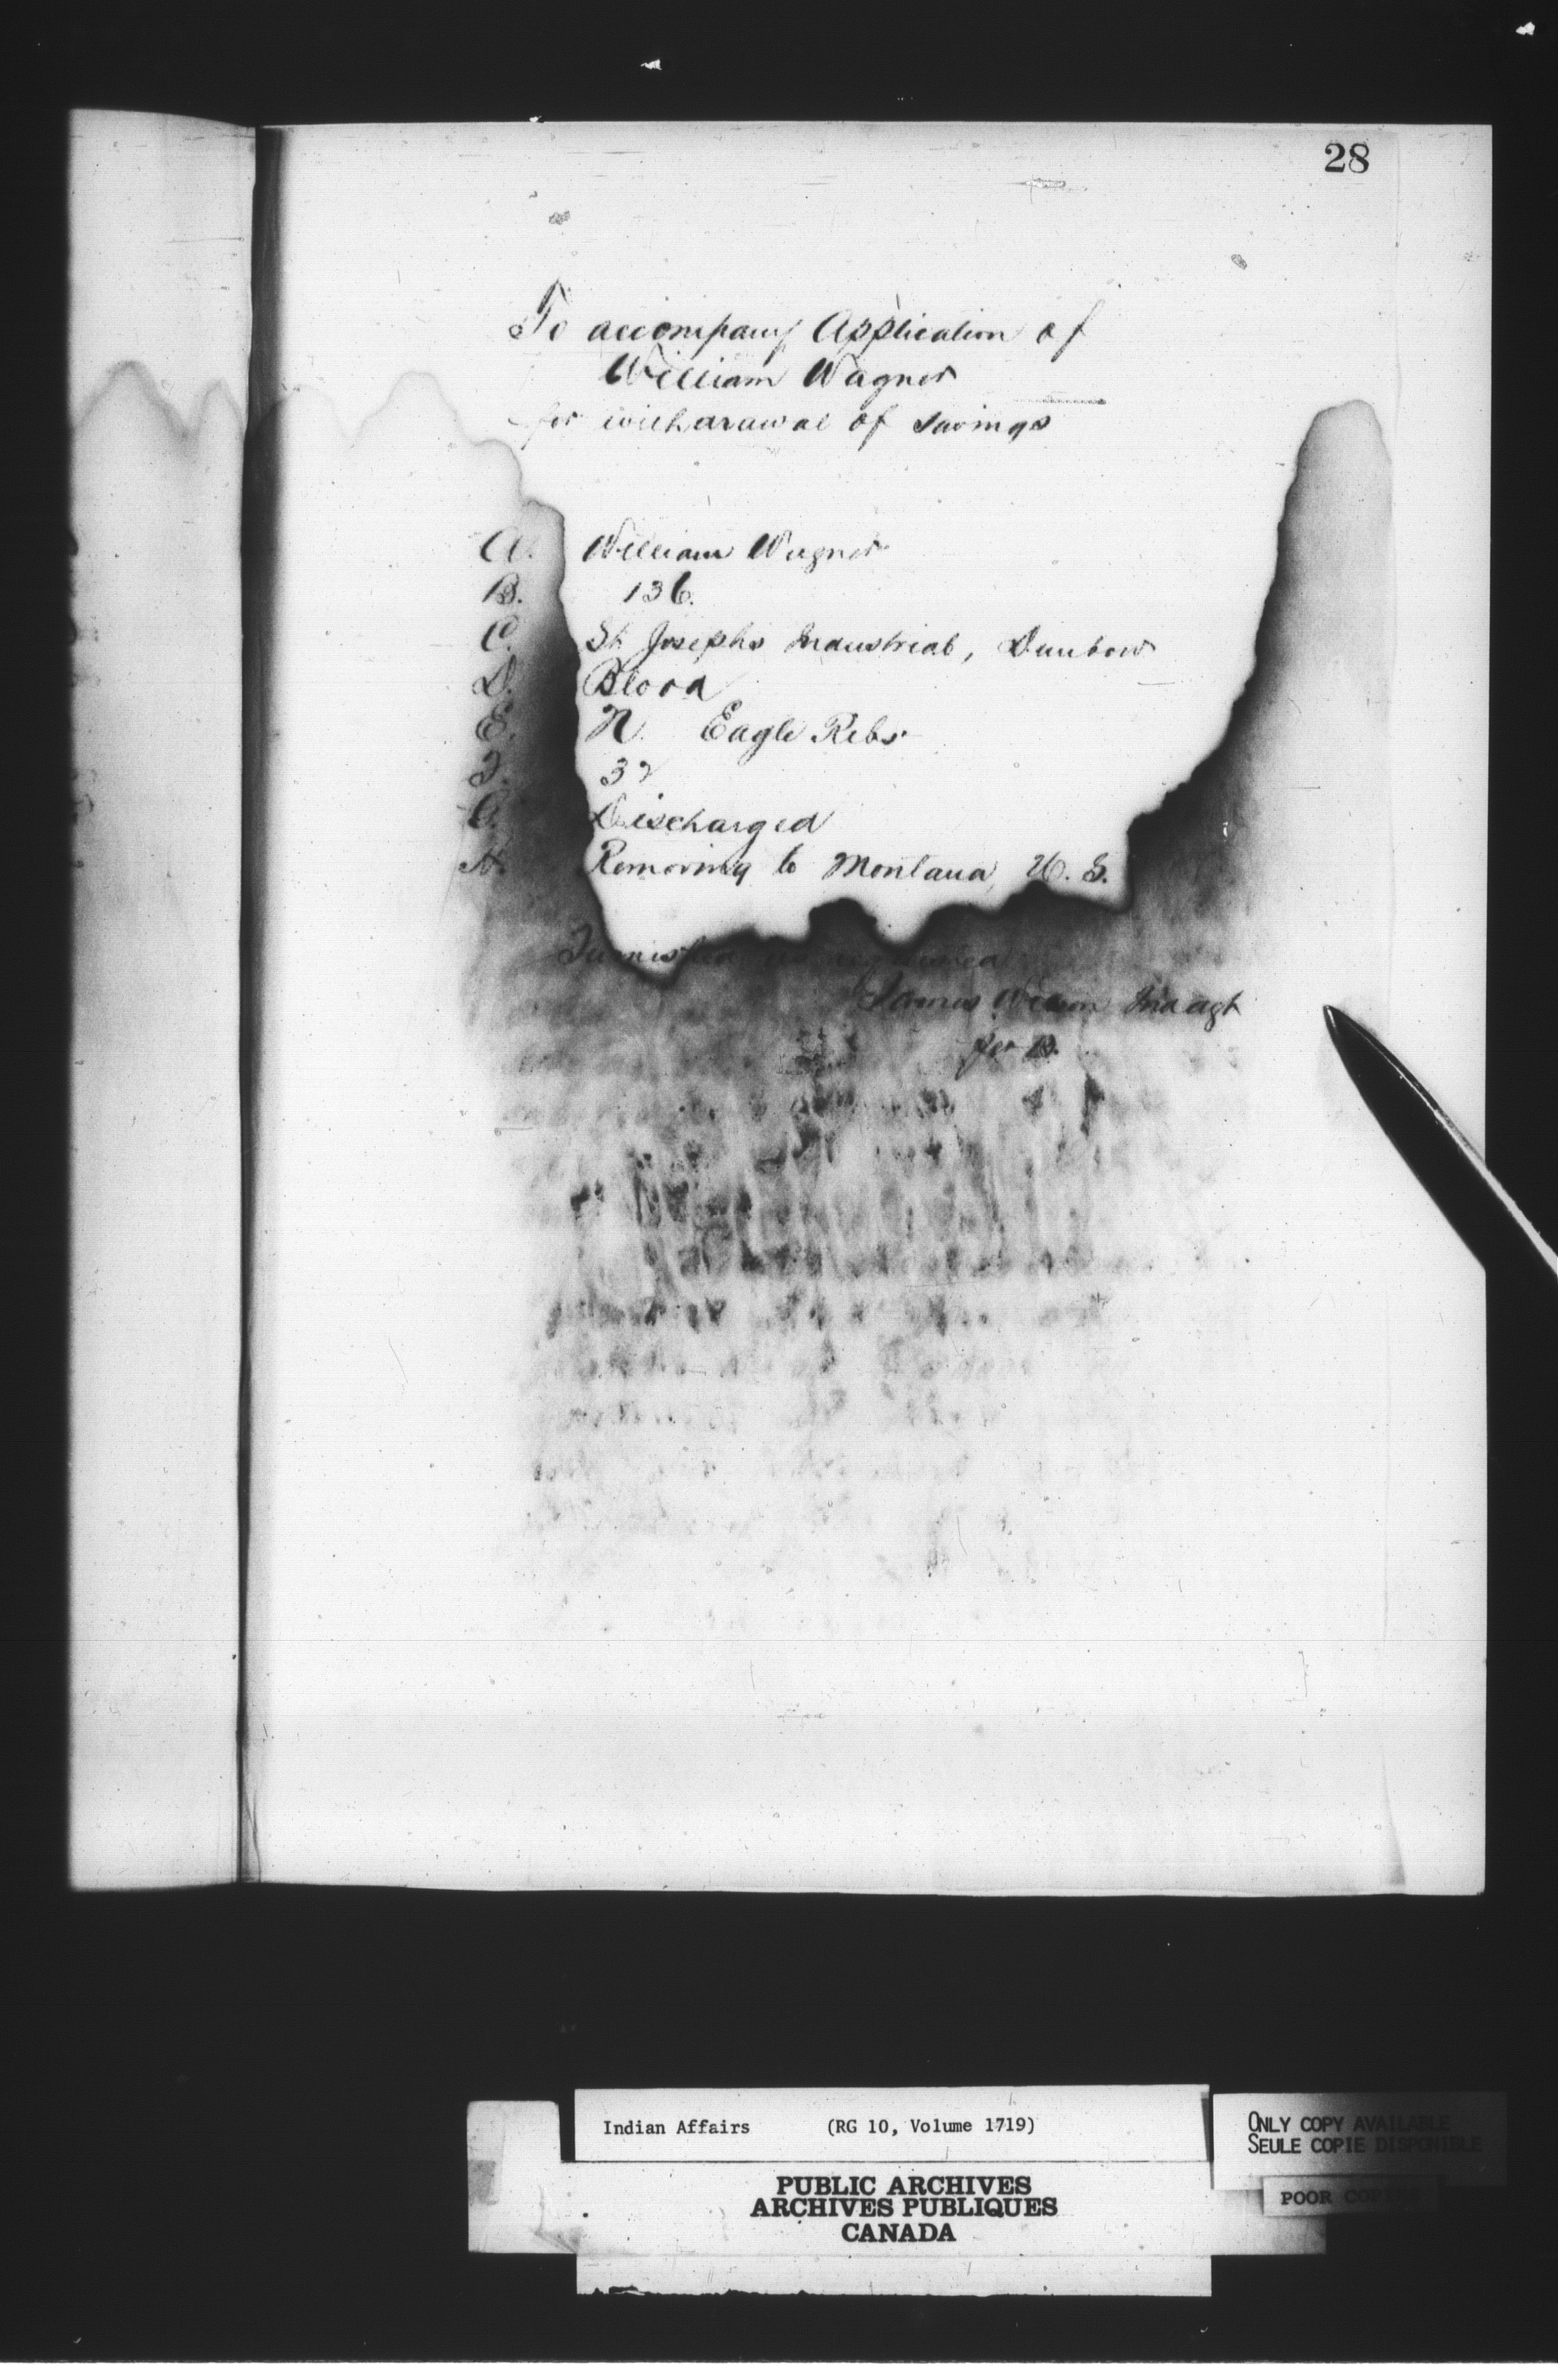 28
To accompany Application of
William Wagner
for withdrawal of savings
A. William Wagner
B. 136.
C. St Josephs Industrial, Dunbow
D. Blood
E. N. Eagle Ribs
F. 32
G. Discharged
H. Removing to Montana, U. S.
Furnished as required
James Wilson Ind agt
per
Indian Affairs (RG 10, Volume 1719)
PUBLIC ARCHIVES
ARCHIVES PUBLIQUES
CANADA
ONLY COPY AVAILABLE
SEULE COPIE DISPONIBLE
POOR COPIES